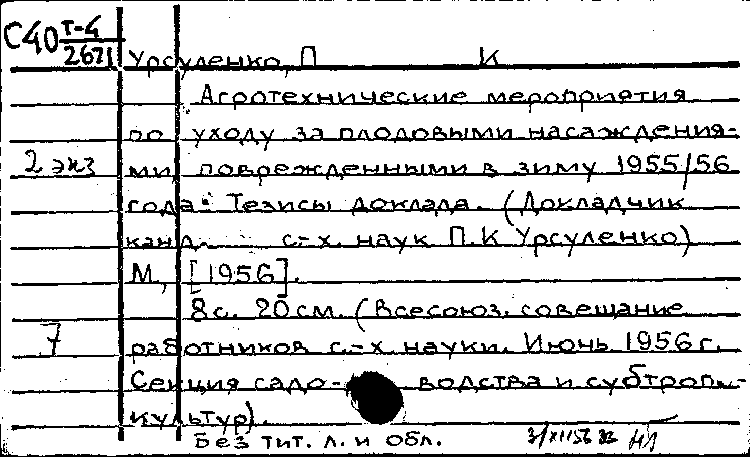 С40 т-4
2671
Урсуленко, П К
Агротехнические мероприятия
по уходу за плодовыми насаждения-
2 экз ми, поврежденными в зиму 1955/56
года: Тезисы доклада. (Докладчик
канд. с-х. наук П.К Урсуленко)
М, [1956].
8с. 20см. (Всесоюз. совещание
7 работников с.-х науки. Июнь 1956г.
Секция садо- водства и субтроп.-
культур).
Без тит. л. и обл.